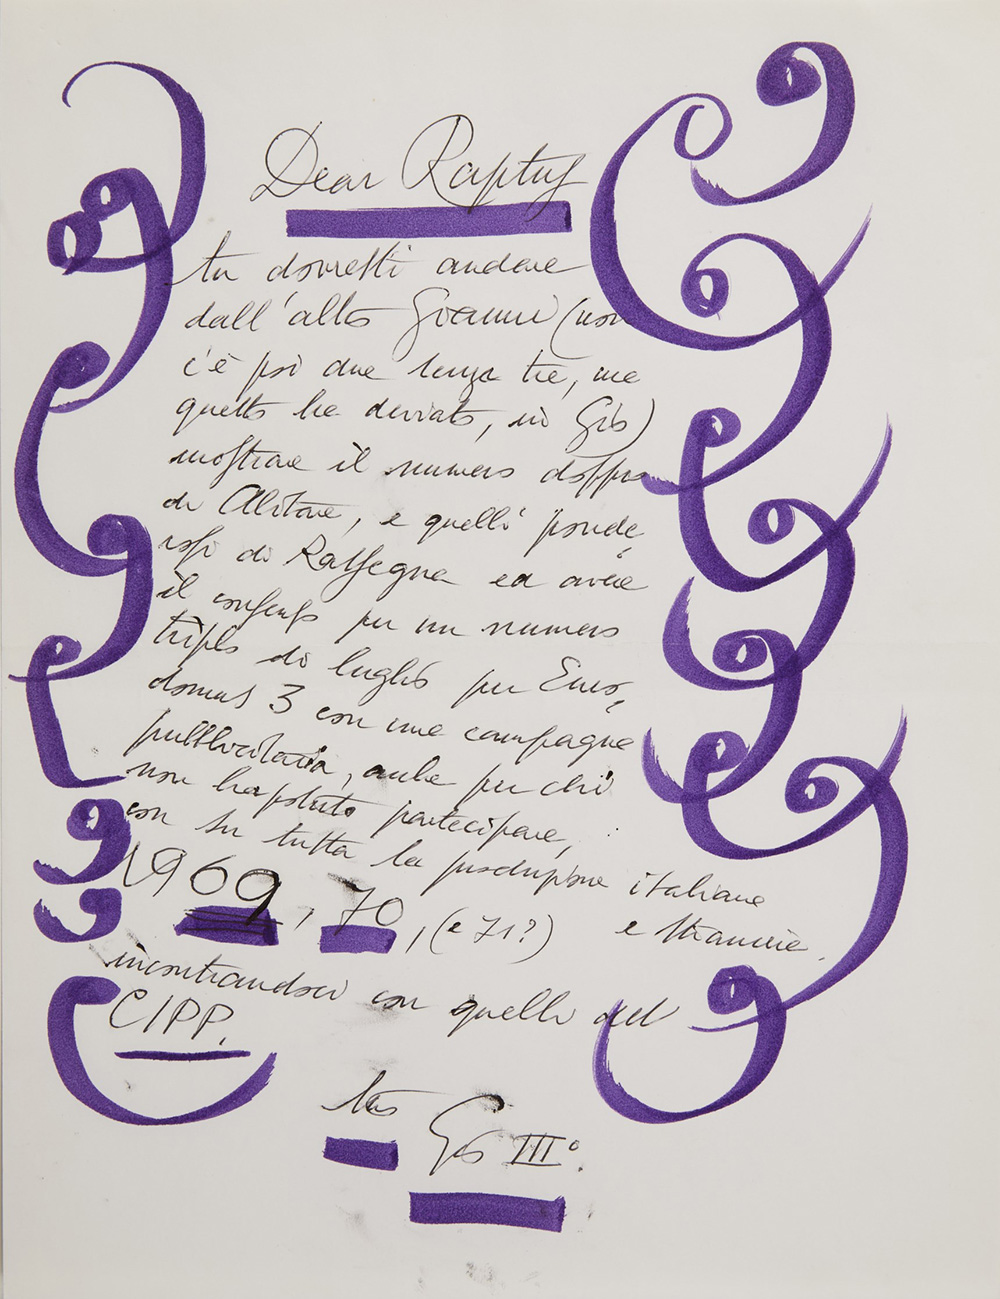 Dear Raptus
tu dovresti andare
dall'altro Gianni (non
c'è poi due senza tre, ma
questo ha deviato, in Gio)
mostrare il numero doppio
di Abitare, e quelli ponde-
rosi di Rassegna ed avere
il consenso per un numero
triplo di luglio per Euro-
domus 3 con una campagna
pubblicitaria, anche per chi
non ha potuto partecipare,
con su tutta la produzione italiana
e straniera.
1969, 70, (e 71?)
incontrandoci con quelli del
CIPP.
tuo
Gio IIIº.